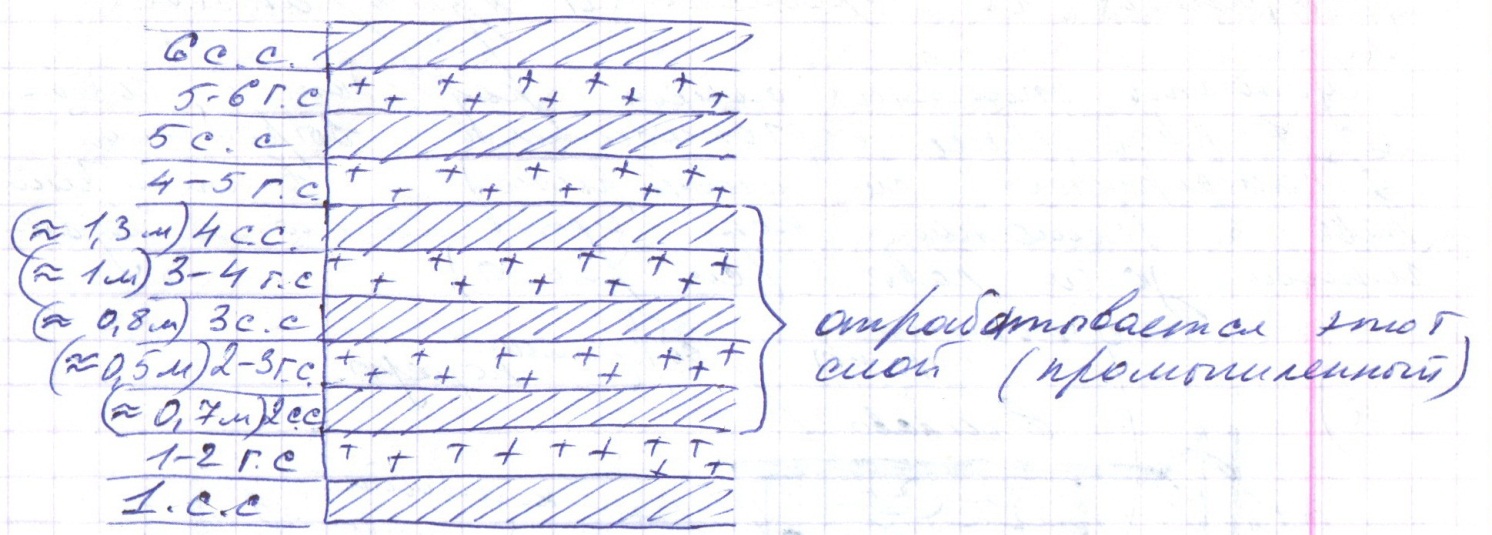 6 с.с.
5-6 г.с
5 с. с
4-5 г.с.
(≈ 1,3 м) 4 с.с.
(≈ 1м) 3-4 г.с
(≈ 0,8м) 3 с.с
(≈0,5м) 2-3 г.с.
(≈ 0,7м) 2с.с
1-2 г.с
1.с.с
отрабатывается этот
слой (промышленный)